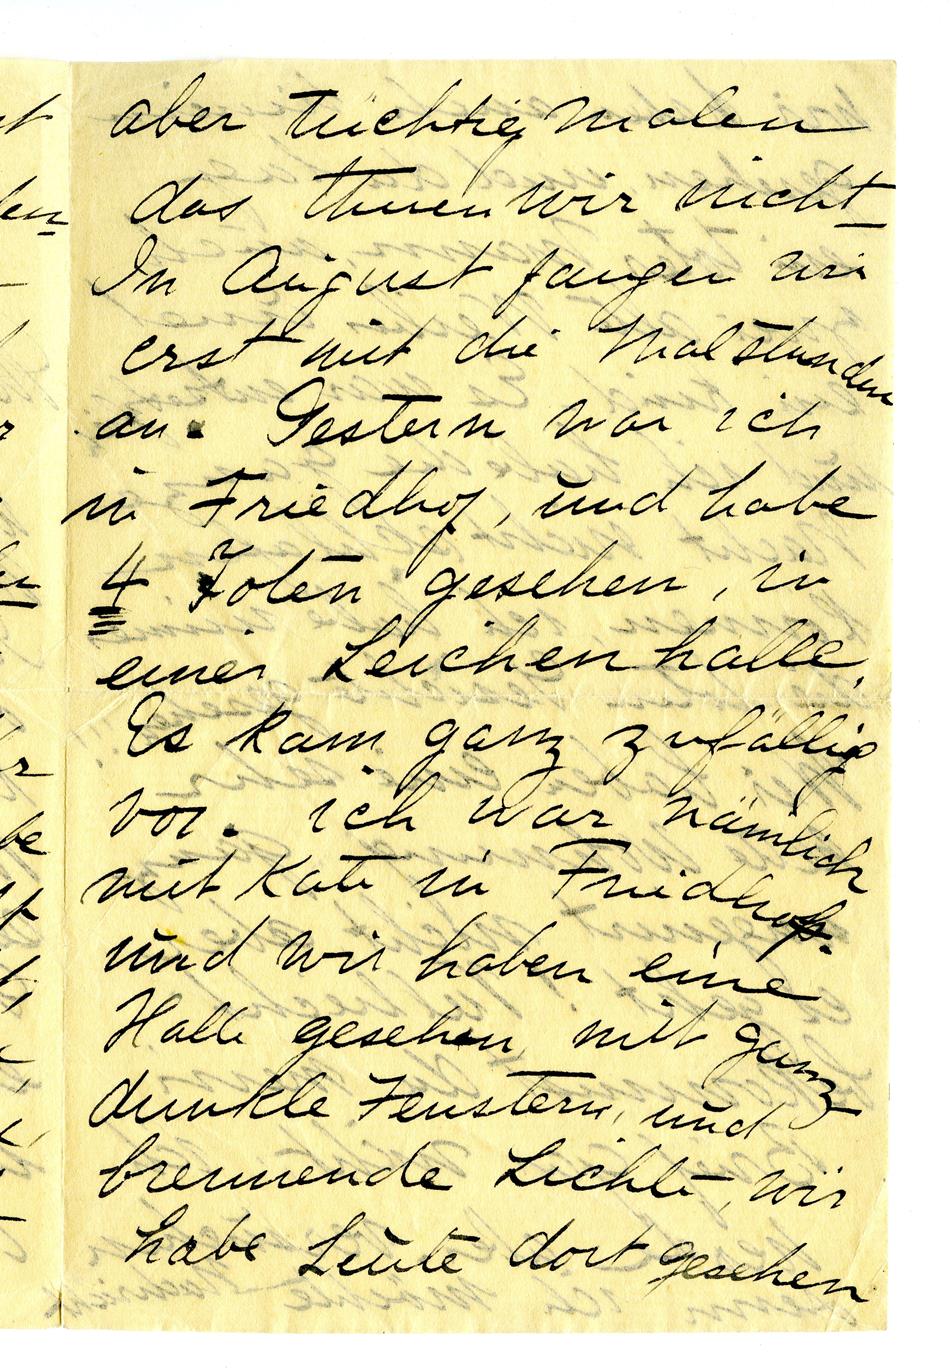 aber tüchtig malen
das thuen wir nicht
In August fangen wir
erst mit die Malstunden
an. Gestern war ich
in Friedhof, und habe
4 Toten gesehen, in
einer Leichenhalle,
Es kam ganz zufällig
vor. ich war nämlich
mit Kate in Friedhof.
und wir haben eine
Halle gesehen, mit ganz
dunkle Fenstern, und
brennende Lichte, wir
habe Leute dort gesehen